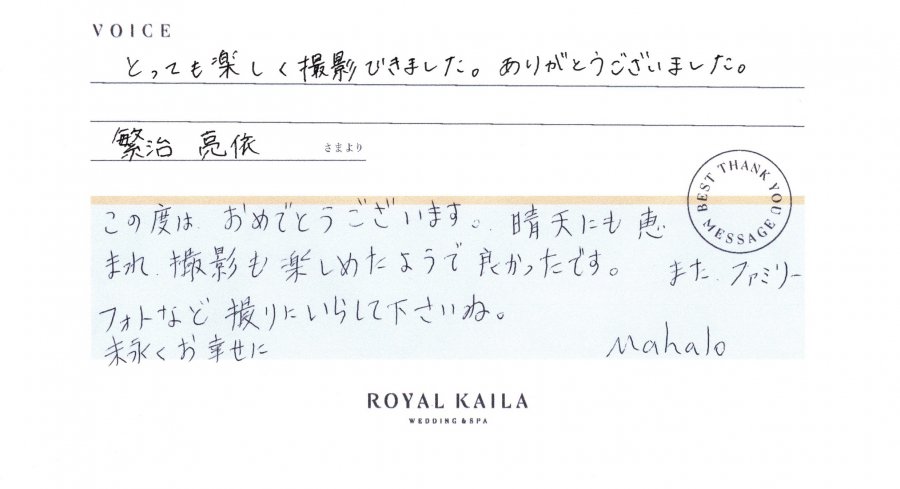 VOICE
とっても楽しく撮影できました。ありがとうございました。
繁治 亮依 さまより
BEST THANK YOU MESSAGE
この度は、おめでとうございます。晴天にも恵
まれ、撮影も楽しめたようで良かったです。また、ファミリー
フォトなど撮りにいらして下さいね。
末永くお幸せに Mahalo
ROYAL KAILA
WEDDING & SPA